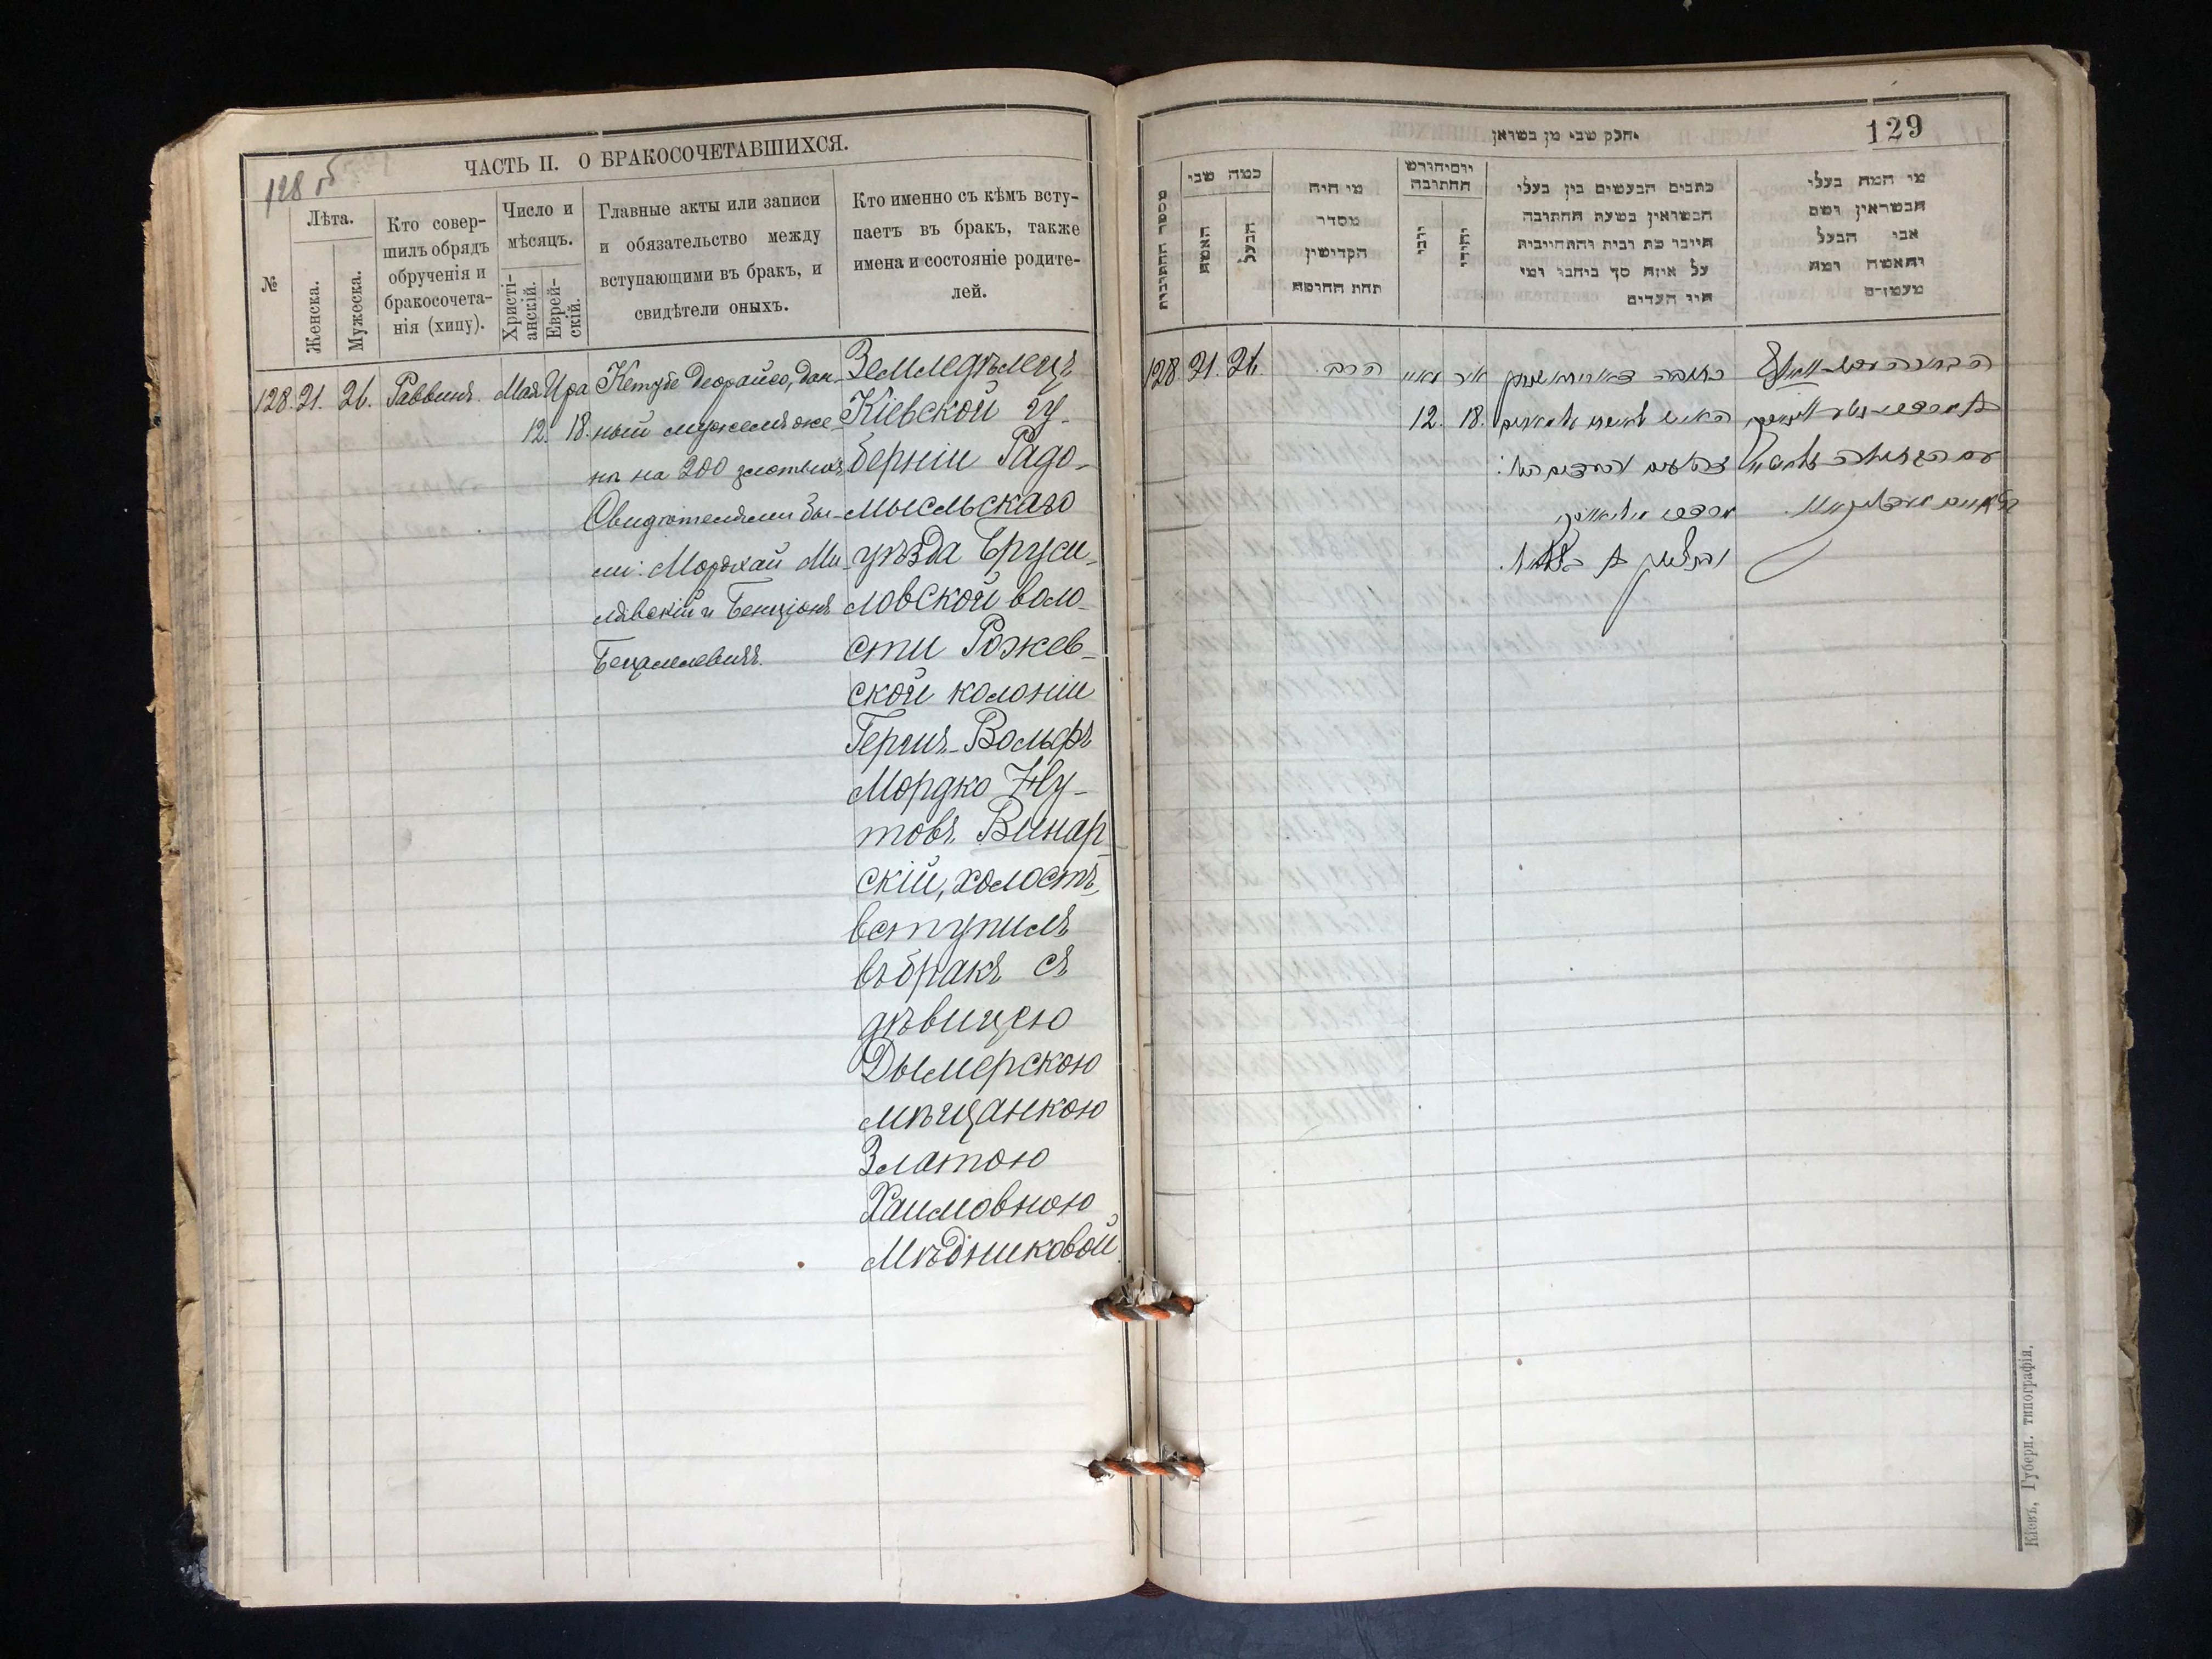 128 об
ЧАСТЬ II. О БРАКОСОЧЕТАВШИХСЯ.
№
Лѣта.
Женска.
Мужеска.
Кто совер-
шилъ обрядъ
обрученія и
бракосочета-
нія (хипу).
Число и
мѣсяцъ.
Христі-
анскій.
Еврей-
скій.
Главные акты или записи
и обязательство между
вступающими въ бракъ, и
свидѣтели оныхъ.
Кто именно съ кѣмъ всту-
паетъ въ бракъ, также
имена и состояніе родите-
лей.
128. 21. 26. Раввинъ. Мая Ира
12. 18.
Кетубе Деорайсо, дан-
ный мужемъ же-
нѣ на 200 злотыхъ
Свидѣтелями бы-
ли: Мордхай Ми-
лявскій и Бенціонъ
Бецалелевичъ.
Земледѣлецъ
Кіевской гу-
берніи Радо-
мысльскаго
уѣзда Бруси-
ловской воло-
сти Рожев-
ской колоніи
Гершъ-Вольфъ
Мордко Ну-
товъ Винар-
скій, холостъ,
вступилъ
въ бракъ съ
дѣвицею
Дымерскою
мѣщанкою
Златою
Хаимовною
Мѣдниковой
129
יחלק שבי מן בשואן
מספר החתונות
כמה שבי
האשה
הבעל
מי היה
מסדר
הקדישין
תחת החופה
יום יחורש
החתובה
יובי
יהודי
כתבים הבעשים בין בעלי
הבשואין בשעת החתובה
חיובי כת רבית והתחייבית
על איזה סך ביחבו ומי
היו העדים
מי המה בעלי
הבשואין ושם
אבי הבעל
והאשה ומה
מעמדם
128 21. 26.
הרב.
מאי איר
12. 18.
כתובה דאורייתא
Кіевъ, Губерн. типографія.